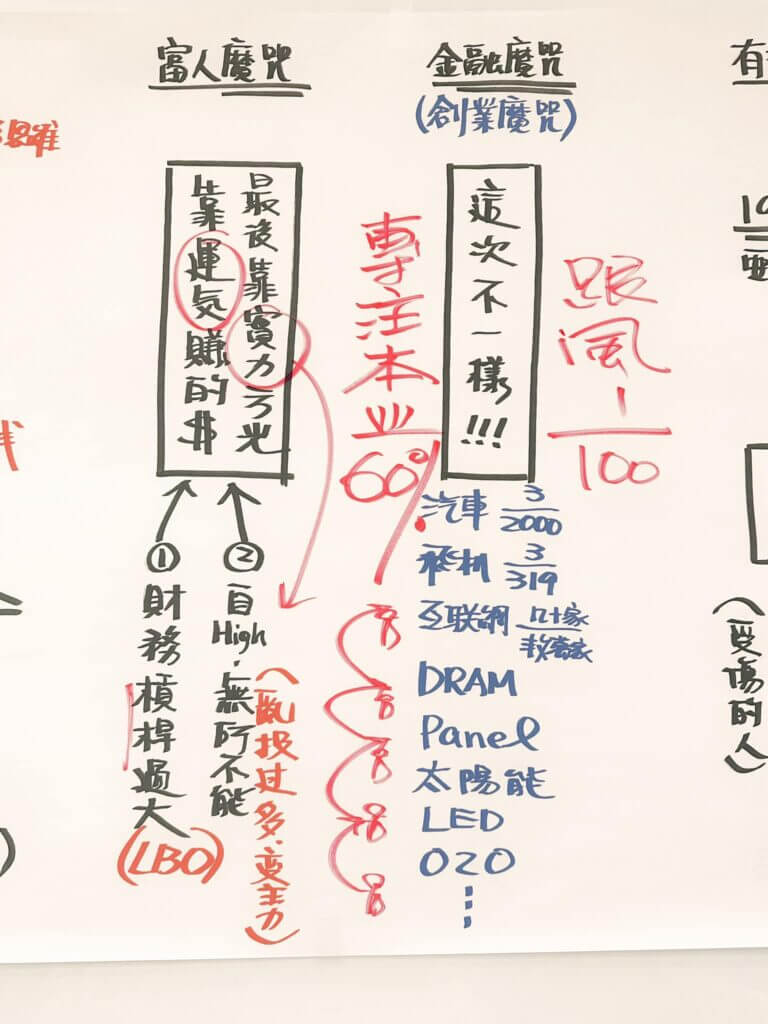 富人魔咒
靠運氣賺的$
最後靠實力亏光
①
財務槓桿過大
(LBO)
②
自High.無所不能
(亂投过多.变主力)
金融魔咒
(創業魔咒)
這次不一樣!!!
專注本业
60°
跟風
1/100
汽車 3/2000
飛机 3/319
互联網 几十家/数万家
DRAM
Panel
太陽能
LED
O2O
⋮
(受傷的人)
有